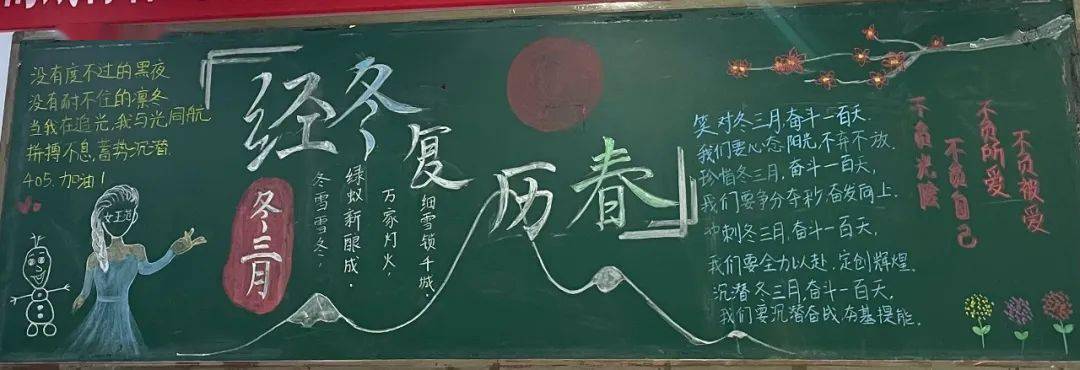 没有度不过的黑夜
没有耐不住的凛冬
当我在追光,我与光同航
拼搏不息,蓄势沉潜.
405.加油!
女王范
「经冬复历春」
冬三月
冬雪雪冬,
绿蚁新醅成.
万家灯火,
细雪锁千城.
笑对冬三月,奋斗一百天.
我们要心态阳光,不弃不放.
珍惜冬三月,奋斗一百天,
我们要争分夺秒,奋发向上.
冲刺冬三月,奋斗一百天,
我们要全力以赴,定创辉煌.
沉潜冬三月,奋斗一百天,
我们要沉潜备战,夯基提能.
不负光险
不负自己
不负所爱
不负被爱